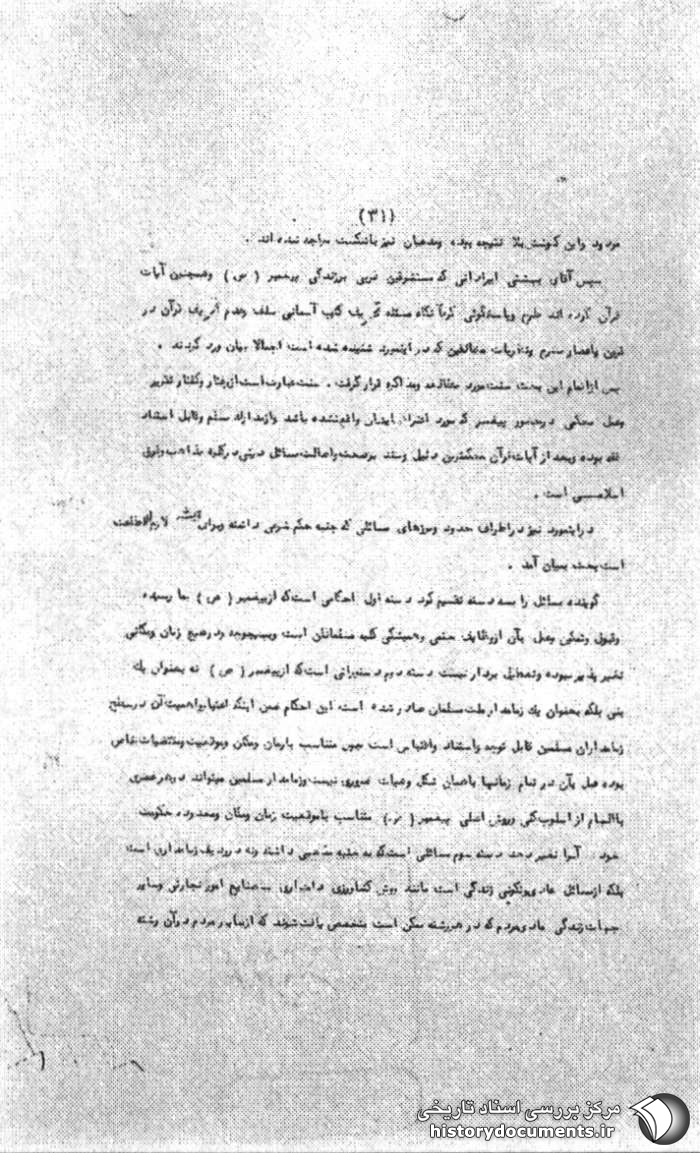 (۳۱)
مردود واین کوشش بلا نتیجه بوده ومدعیان نیز باشکست مواجه شده اند .
سپس آقای بهشتی ایراداتی که مستشرقین غربی برزندگی پیغمبر ( ص ) وهمچنین آیات
قرآن آورده اند طرح وپاسخگوئی کرد آنگاه مسئله تحریف کتب آسمانی سلف وعدم تحریف قرآن در
قرون واعصار ونظریات مخالفین که در اینمورد شنیده شده است اجمالا بیان ورد گردند .
پس ازاتمام این بحث سنت مورد مطالعه ومذاکره قرار گرفت . سنت عبارت است از رفتار وگفتار تقریر
وعمل در حضور پیغمبر که مورد اعتراض ایشان واقع نشده باشد وازمدارک مسلم وقابل استناد
فقه بوده وبعد از آیات قرآن محکمترین دلیل وسند برصحت واصالت مسائل دینی در کلیه مذاهب وفرق
اسلامی است .
در اینمورد نیز در اطراف حدود ومرزهای مسائلی که جنبه حکم شرعی داشته وبرای همیشه لازم الاطاعت
است بحث بمیان آمد .
گوینده مسائل را بسه دسته تقسیم کرد دسته اول احکامی است که ازپیغمبر ( ص ) بما رسیده
وقبول وعمل بآن ازوظایف حتمی وهمیشگی کلیه مسلمانان است وبهیچوجه ودرهیچ زمان ومکانی
تغییر پذیر نبوده وتعطیل بردار نیست دسته دوم دستوراتی است که ازپیغمبر ( ص ) نه بعنوان یک
نبی بلکه بعنوان یک زمامدار ملت مسلمان صادر شده است این احکام ضمن اینکه اعتبار واهمیت آن در سطح
زمامداران مسلمین قابل توجه واستناد واقتباس است چون متناسب بازمان ومکان وموقعیت ومقتضیات خاص
بوده عمل بآن در تمام زمانها باهمان شکل وهیات ضروری نیست وزمامدار مسلمین میتواند در هر عصری
باالهام از اسلوب کلی وروش اصلی پیغمبر ( ص ) متناسب باموقعیت زمان ومکان ومحدوده حکومت
خود آنرا تغییر دهد دسته سوم مسائلی است که نه جنبه مذهبی داشته ونه در ردیف زمامداری است
بلکه ازمسائل عادی زندگی است مانند روش کشاورزی دامداری صنایع امور تجارتی وسایر
جهات زندگی عادی مردم که در هر رشته ممکن است متخصصی یافت شوند که ازسایر مردم در آن رشته
مرکز بررسی اسناد تاریخی
historydocuments.ir